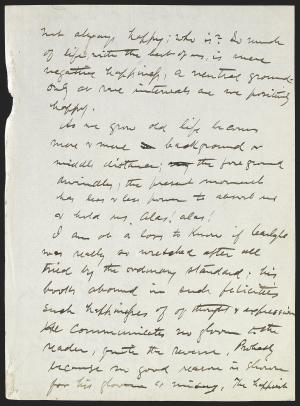 not always happy; who is? So much
of life, with the best of us, is mere
negative happiness, a neutral ground.
only at rare intervals are we positively
happy.
As we grow old life becomes
more & more background or
middle distance; the foreground
dwindles; the present moment
has less & less power to absorb us
or hold us. Alas! alas!
I am at a loss to know if Carlyle
was really so wretched after all
tried by the ordinary standard; his
books abound in such felicities
such happinesses of thought & expression
He communicates no gloom to the
reader, quite the reverse. Probably
because no good reason is shown
for his gloom & misery. The happiest